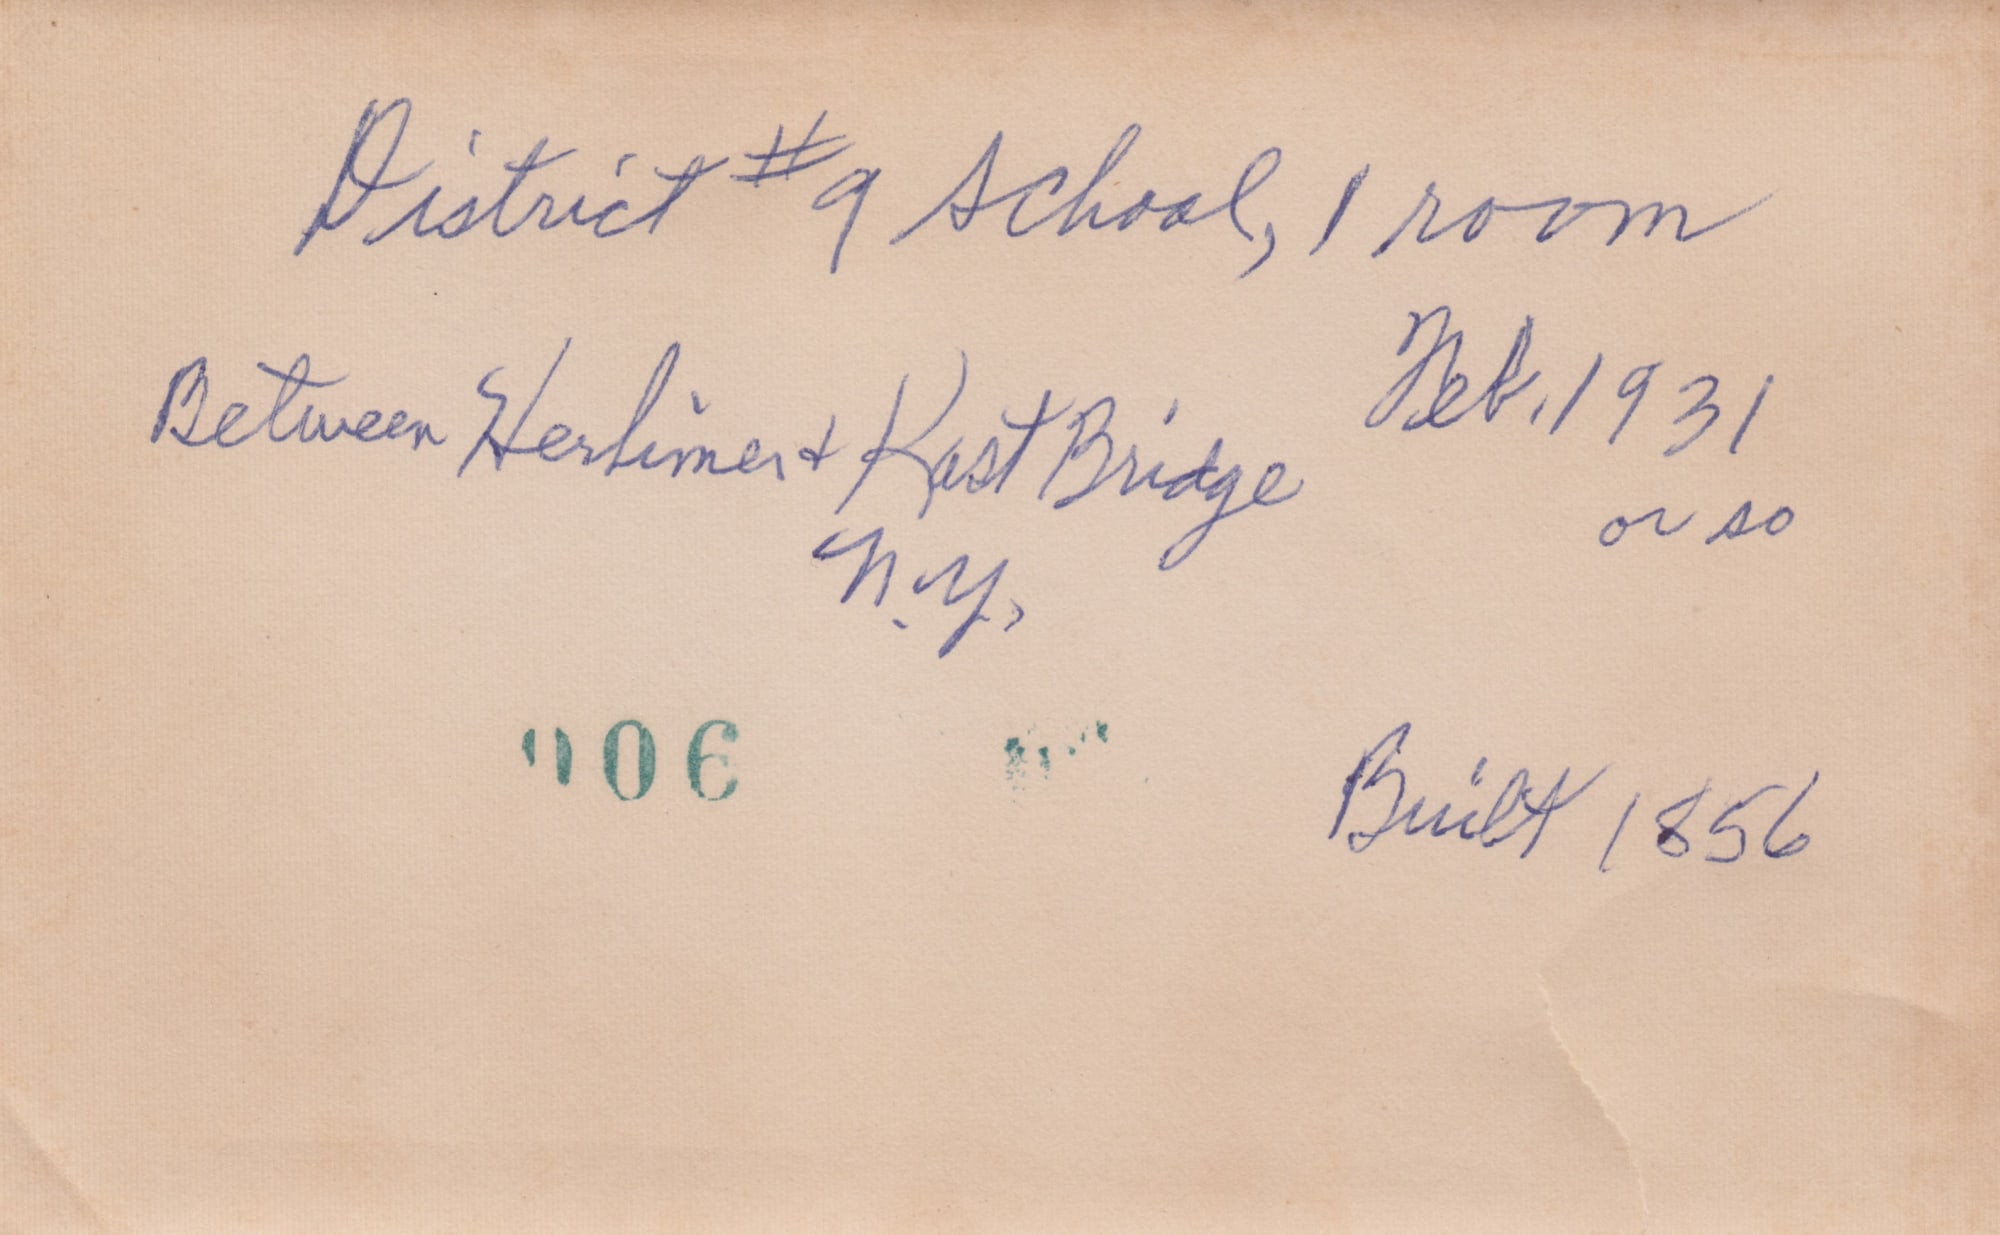 District #9 school, 1 room
Feb. 1931
or so
Between Herkimer & Kast Bridge
N.Y.
06
Built 1856